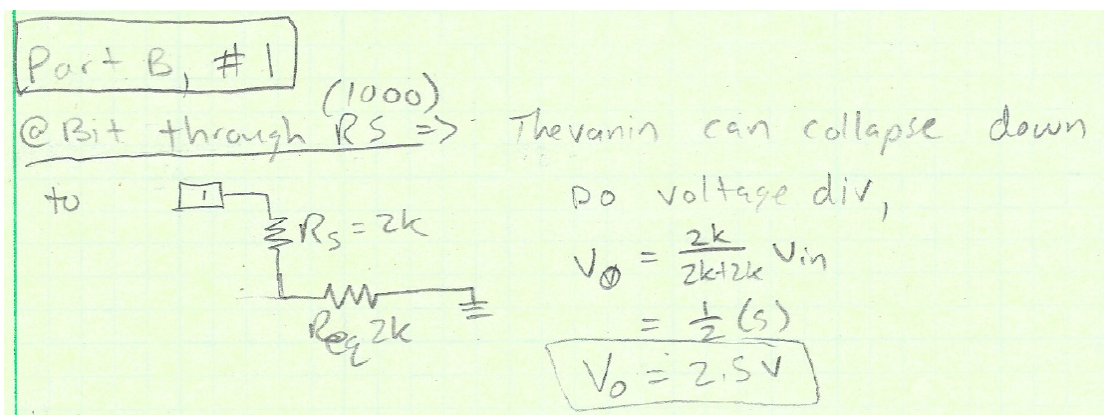 Part B, # 1
(1000)
@ Bit through RS => Thevanin can collapse down
to
1
Rs = 2k
Req 2k
Do voltage div,
Vo = 2k / 2k+2k Vin
= 1/2 (5)
Vo = 2.5 V